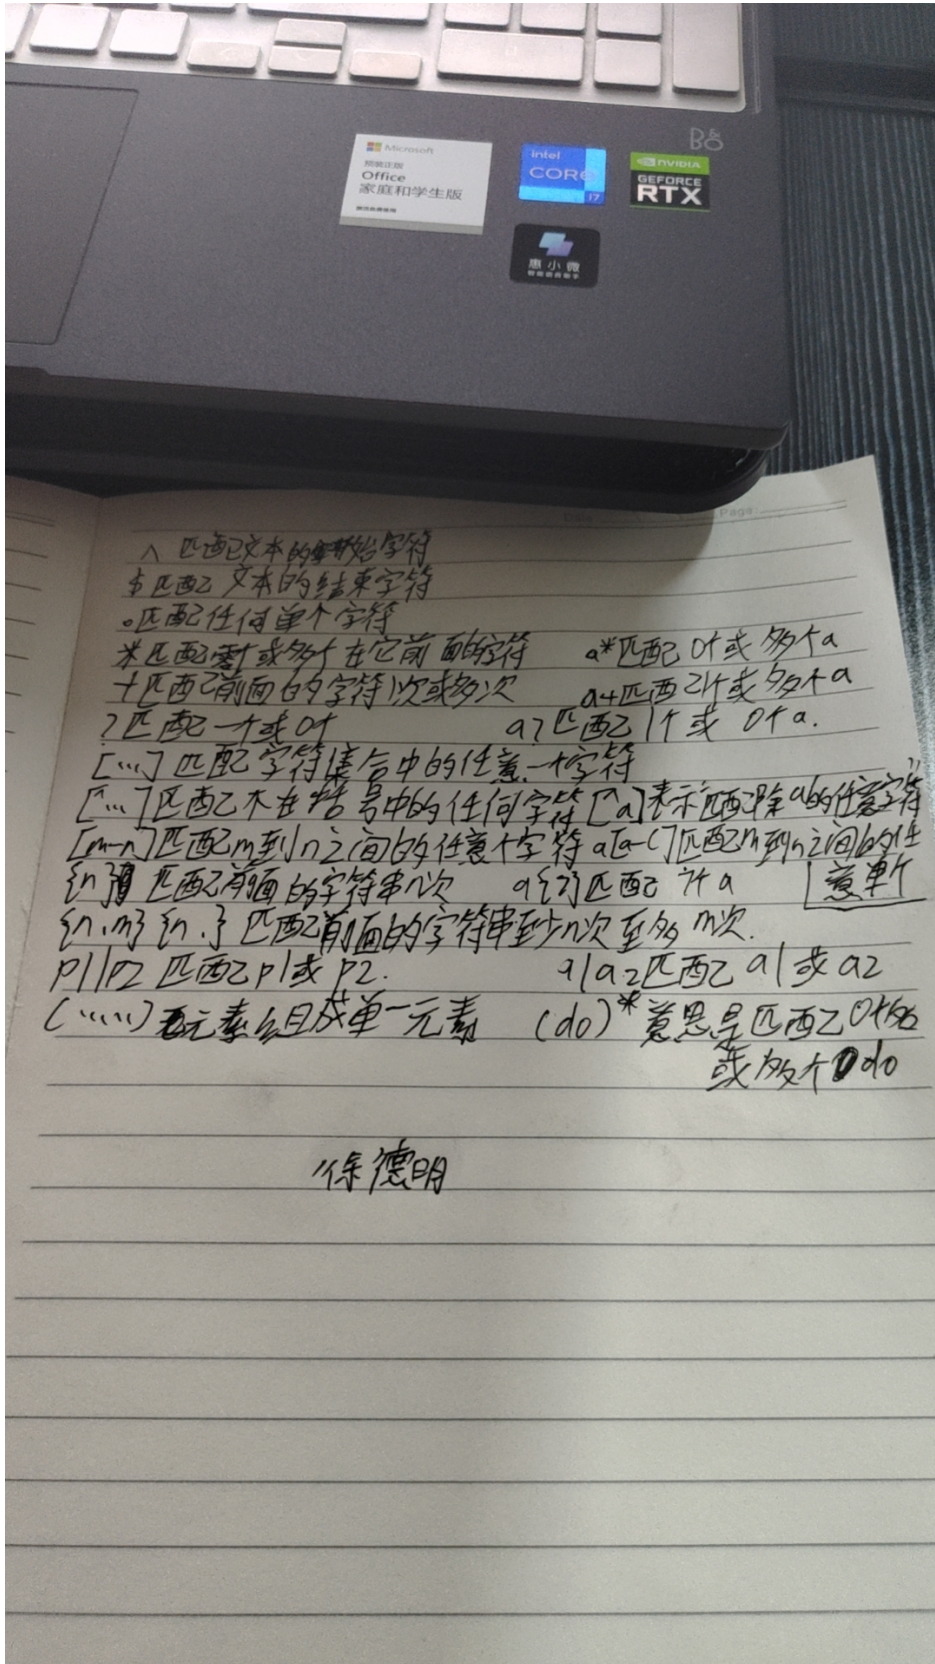 B&O
Microsoft
预装正版
Office
家庭和学生版
intel
CORE
i7
NVIDIA
GEFORCE
RTX
惠小微
Page:
^ 匹配文本的开始字符
$ 匹配文本的结束字符
。匹配任何单个字符
* 匹配零个或多个在它前面的字符 a*匹配0个或多个a
+匹配前面的字符1次或多次 a+匹配1个或多个a
? 匹配一个或0个 a?匹配1个或0个a.
[…] 匹配字符集合中的任意一个字符
[^…]匹配不在括号中的任何字符 [^a]表示匹配除a的任意字符
[m-n]匹配m到n之间的任意个字符 a[a-c]匹配m到n之间的任
意单个
{n} 匹配前面的字符串n次 a{7}匹配7个a
{n,m} {n,} 匹配前面的字符串至少n次至多m次.
p1|p2 匹配p1或p2. a1|a2匹配a1或a2
(……) 元素组成单一元素 (do)*意思是匹配0个
或多个do
徐德明